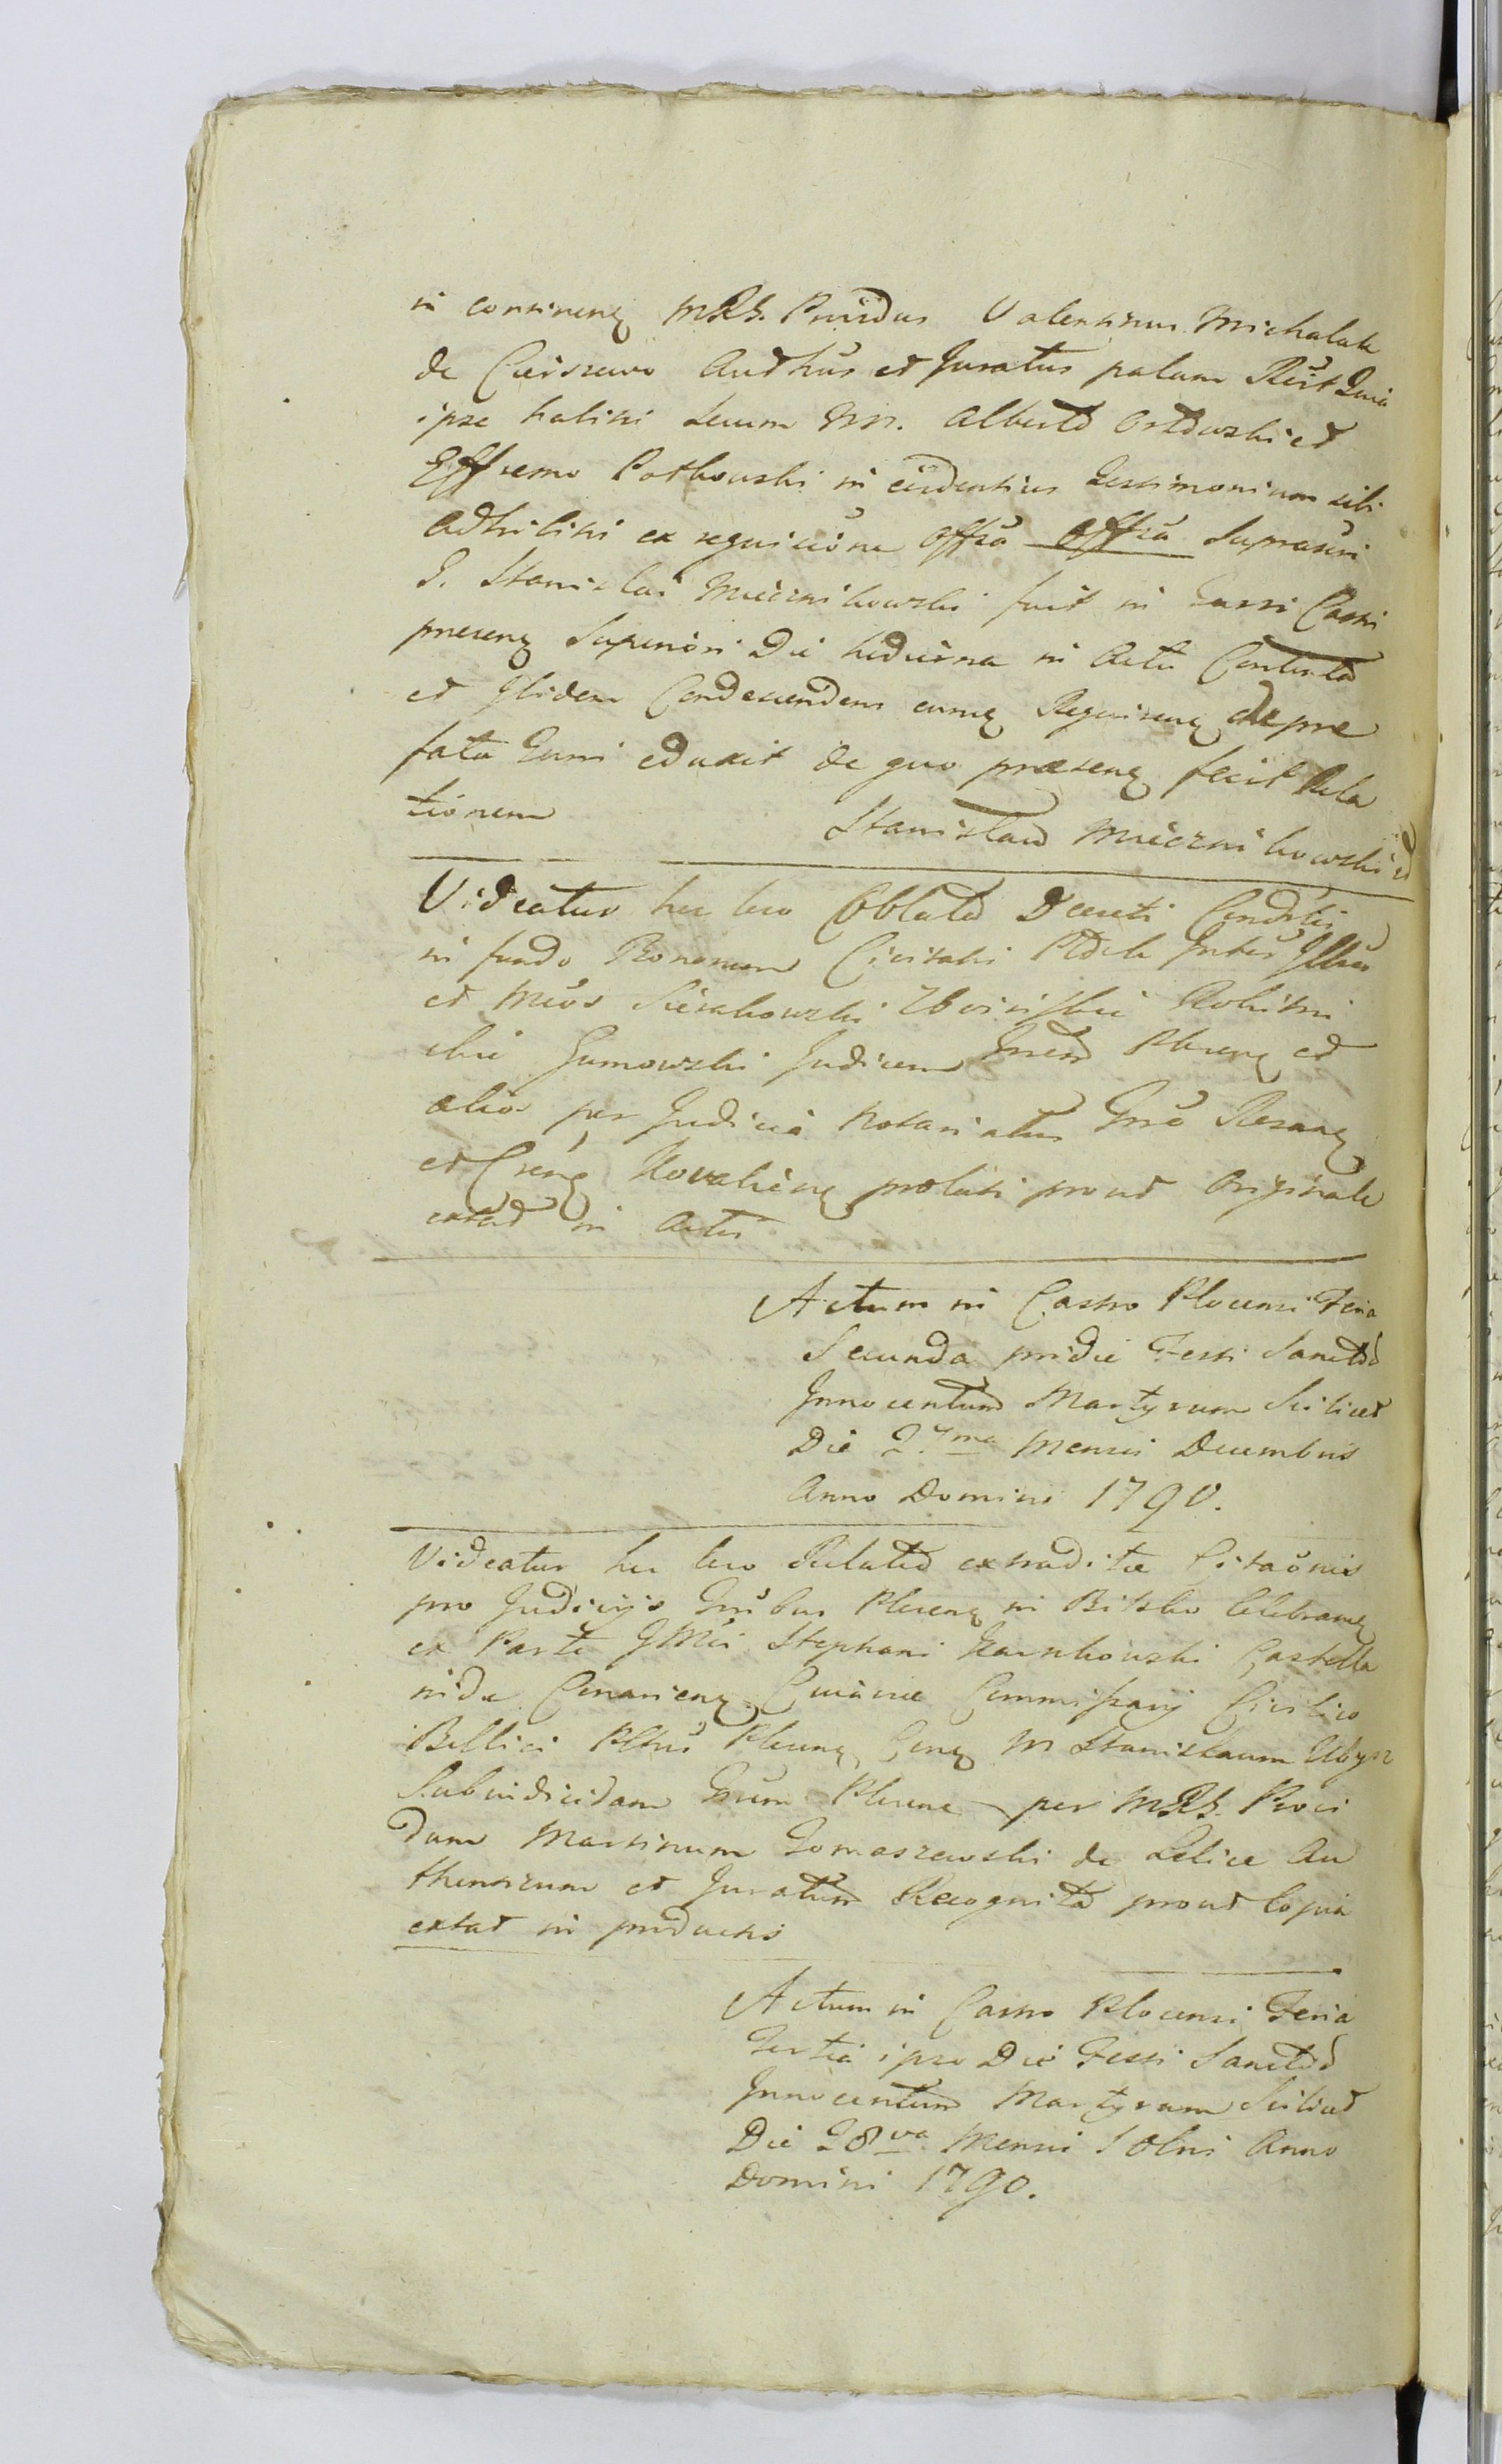 in continenq MRS. Puidus Valentinus Michalak
de Cieiszewo Authus et Juratus palam Recit Quia
ipse habitis secum NN. Alberto Ostowski et
Effremo Patkowski in evidentius testimonium sibi
Adhibitis ex requisicione Offsa Offsa Suprascri
G. Stanislai Miecznikowski fuit in Turri Castri
presenq Superiori Die hodierna in Actu Contenta
et Ibidem Condescendens eumq Requirenq de pre
fata Turri eduxit de quo praesenq fecit Rela
tionem Stanislaw Miecznikowski
Videatur hic loco Oblata Decreti Condlis
in fundo Bonorum Civitatis inter Illres
et Mcos Sierakowski
Gumowski Judicem Trrem Plocenq et
alios per Judicia Notariatus Grro
et prolati prout Originale
extat in Actis
Actum in Castro Plocensi Feria
Secunda pridie Festi Sanctor
Innocentum Martyrum Scilicet
Die 27ma Mensis Decembris
Anno Domini 1790.
Videatur hic loco Relatio extraditae Citaonis
pro Judicijs Trribus Plocenq in Bielsko Celebranq
ex Parte GMci Stephani Karnkowski Castella
nidae Conarienq Cuiaviae Commissarij Civilico
Bellici Pltus Plocenq Genq M Stanislaum
Subiudicidam Trrum Plocenq per MRS. Provi
dum Martinum Tomaszewski de Lelice Au
thenticum et Juratum Recognita prout Copia
extat in productis
Actum in Castro Plocensi Feria
Tertia ipso Die Festi Sanctor
Innocentum Martyrum Scilicet
Die 28va Mensis Xbris Anno
Domini 1790.